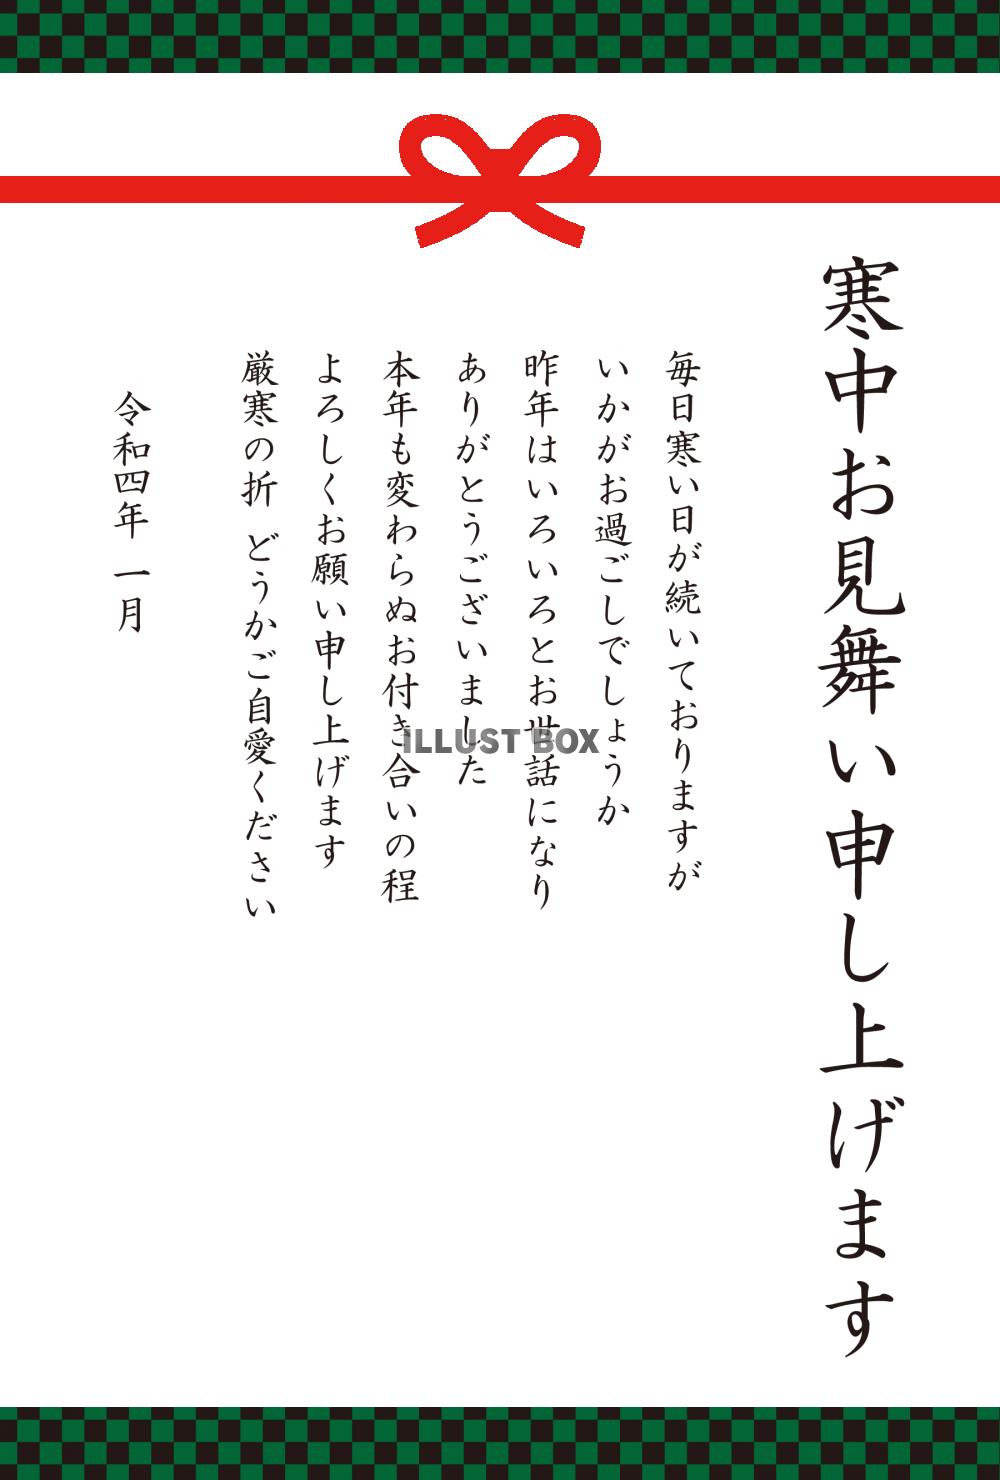 寒中お見舞い申し上げます
毎日寒い日が続いておりますが
いかがお過ごしでしょうか
昨年はいろいろとお世話になり
ありがとうございました
本年も変わらぬお付き合いの程
よろしくお願い申し上げます
厳寒の折 どうかご自愛ください
令和四年 一月
ILLUST BOX